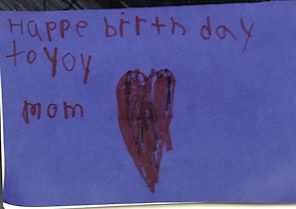 Happe birth day
to yoy
mom